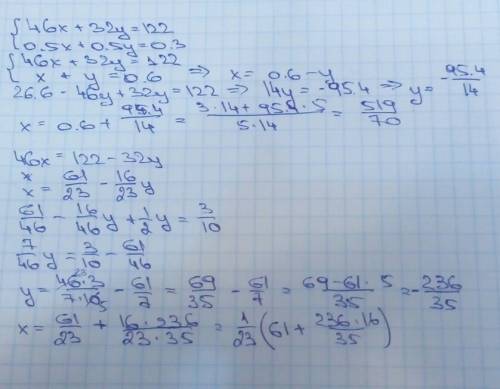 {46x + 32y = 122
{0.5x + 0.5y = 0.3
{46x + 32y = 122
{x + y = 0.6 ⇒ x = 0.6 - y
26.6 - 46y + 32y = 122 ⇒ 14y = -95.4 ⇒ y = -95.4/14
x = 0.6 + 95.4/14 = (3·14 + 95.4·5)/(5·14) = 519/70
46x = 122 - 32y
x = 61/23 - 16/23 y
61/46 - 16/46 y + 1/2 y = 3/10
7/46 y = 3/10 - 61/46
y = (46·3)/(7·10) - 61/7 = 69/35 - 61/7 = (69 - 61·5)/35 = -236/35
x = 61/23 + (16·236)/(23·35) = 1/23 (61 + (236·16)/35)